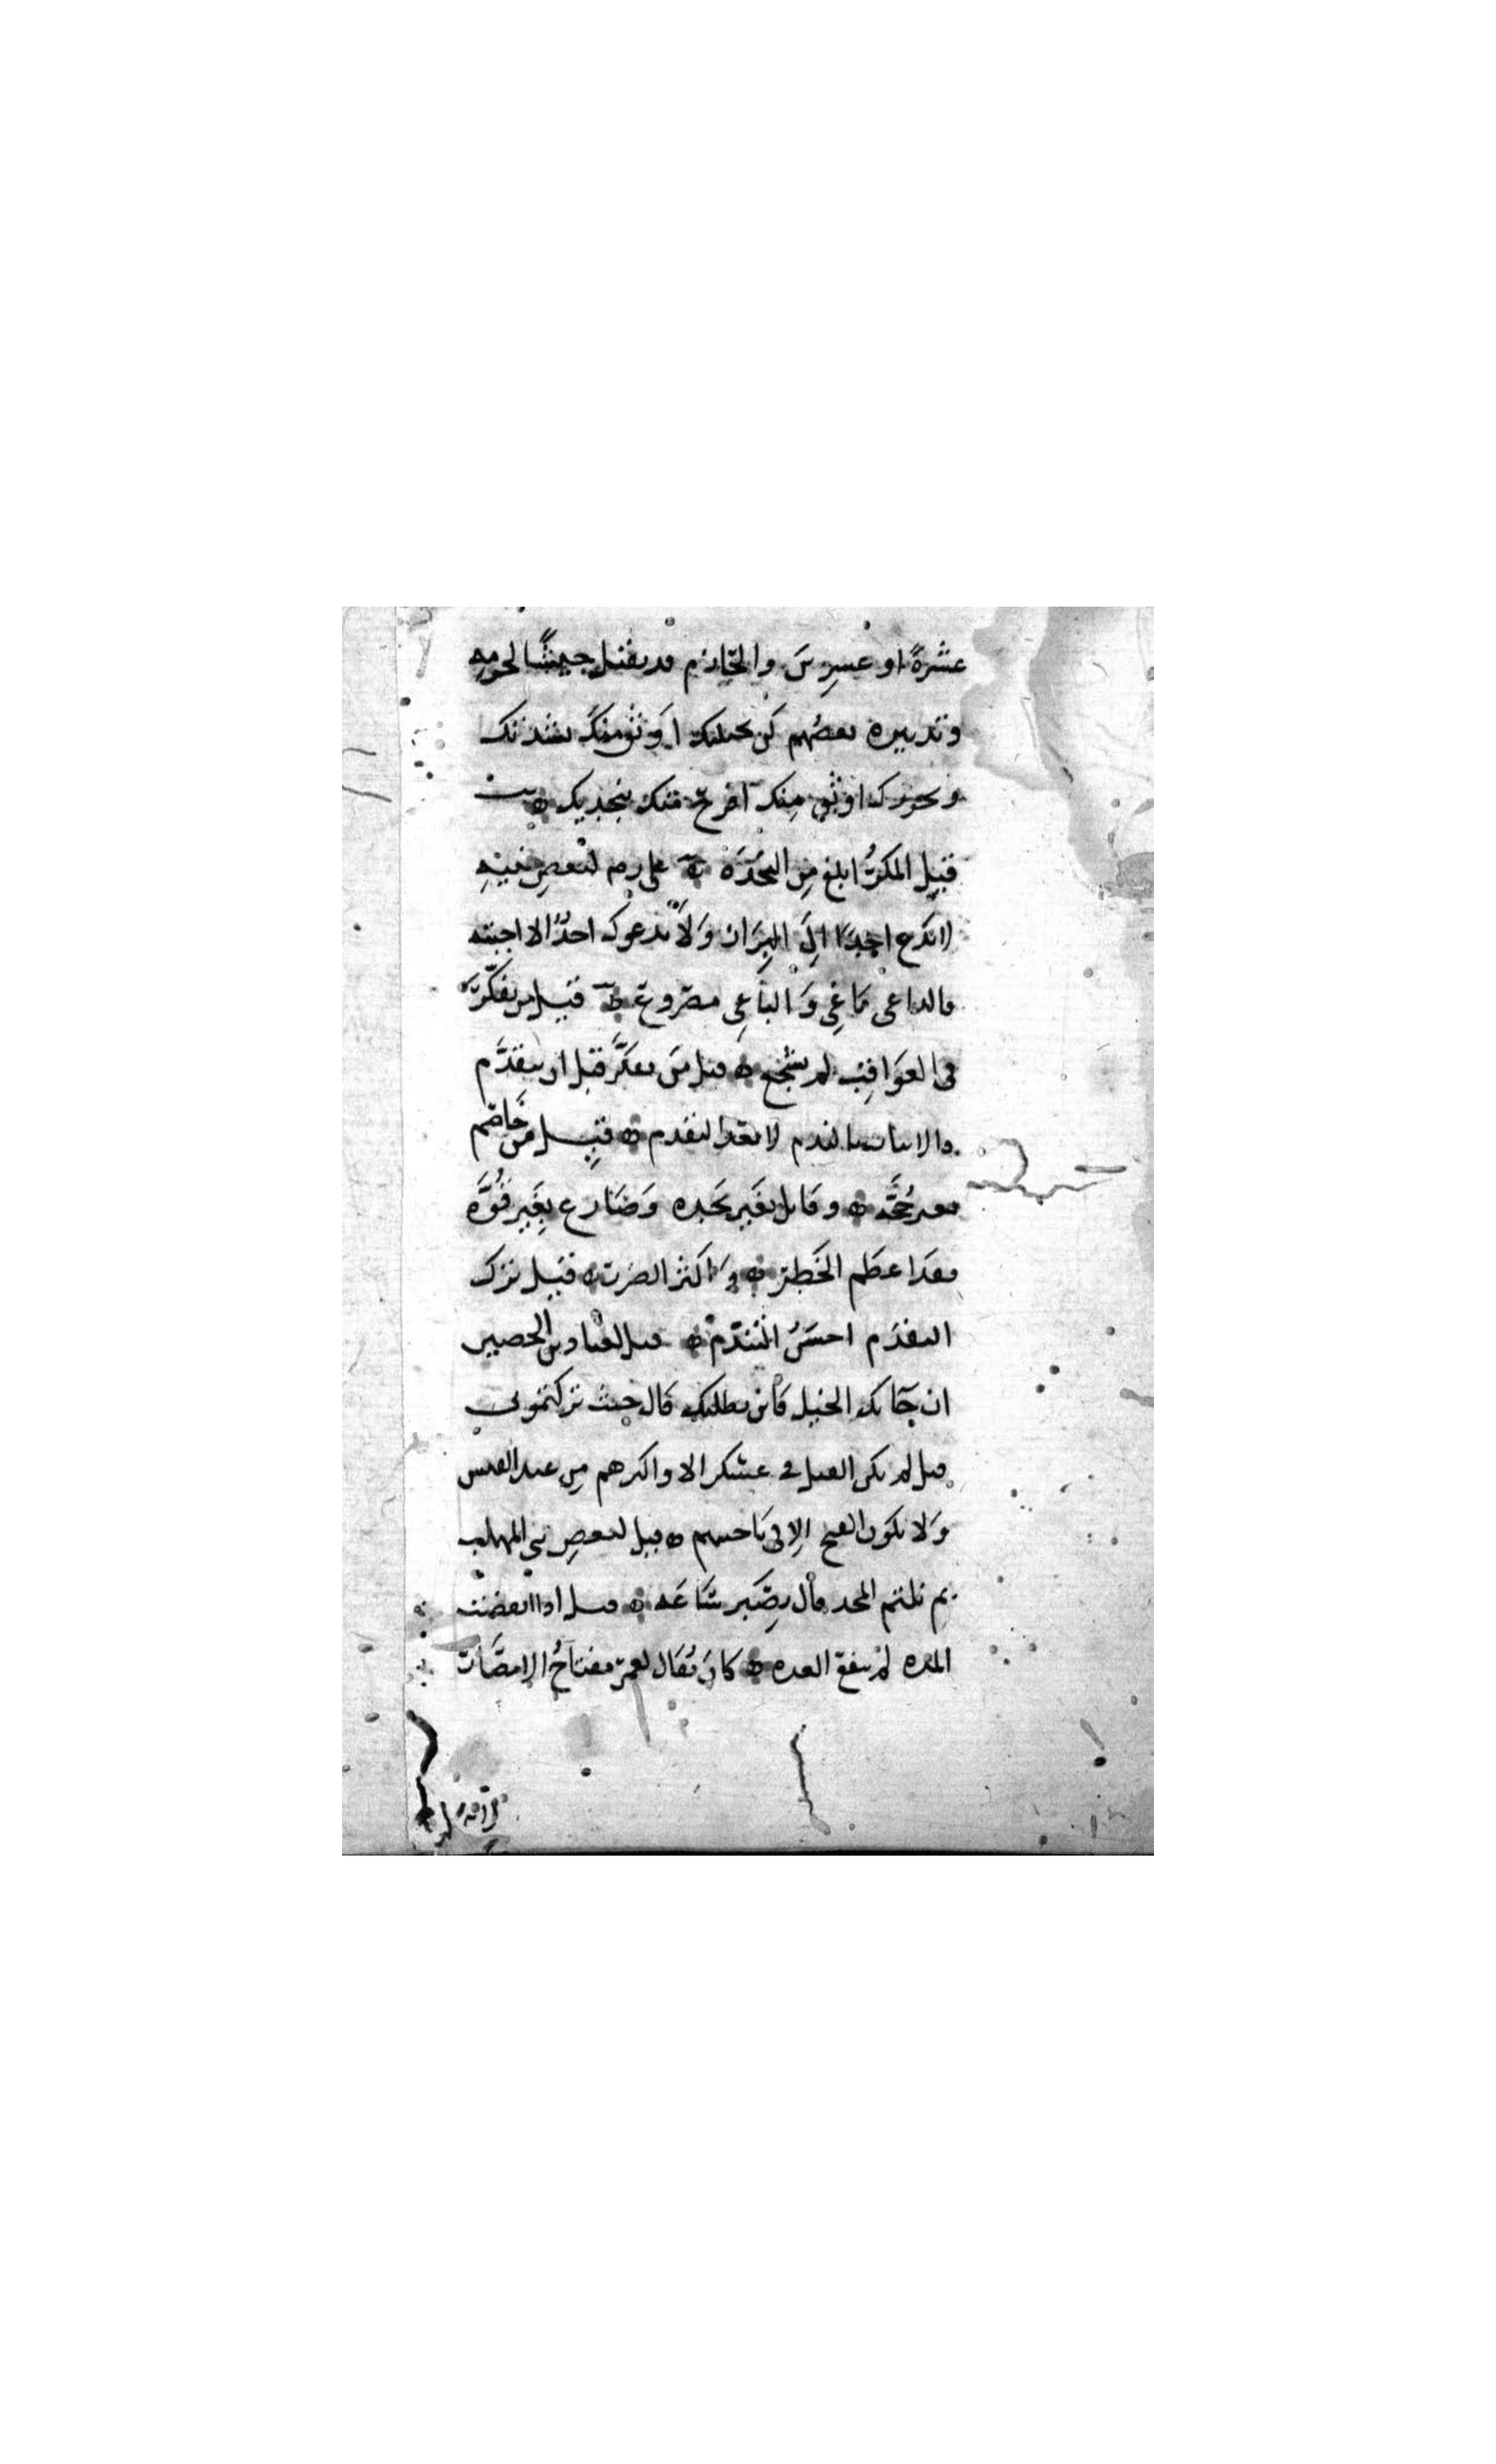 عشرةً او عشرين والحازم قد يقتل جيشًا لحزمه
وتدبيره بعضهم كن بحيلتك اوثق منك بشدتك
وبحذرك اوثق منك افرح منك بنجدتك
قيل المكرُ ابلغ من النجدَة على رضه لبعض بنيه
لا تدع احدًا الى البراز ولا يدعوك احدٌ الا اجبته
فالداعى باغى والباغى مصروع قيل من تفكر
فى العواقب لم يشجع قيل من تفكر قبل ان يتقدم
والا بالندم لا بعد التقدم قيل من خاصم
بغير حُجَّه وقاتل بغير نجده وصارع بغير قُوَّه
فقد اعظم الخطر واكثر الضرر قيل ترك
التقدم احسَنُ التندم قيل لعباد بن الحصين
ان جآتك الخيل فاين نطلبك قال حيث تركتمونى
قيل لم تكن الفيل فى عسكر الا واكثرهم من عبد القيس
ولا يكون الفتح الا فى ناحيتهم قيل لبعض بنى المهلب
بم نلتم المجد قال بصَبر سَاعه قيل اذا انقضت
المده لم ينفع العده كان يُقال مفتاحُ